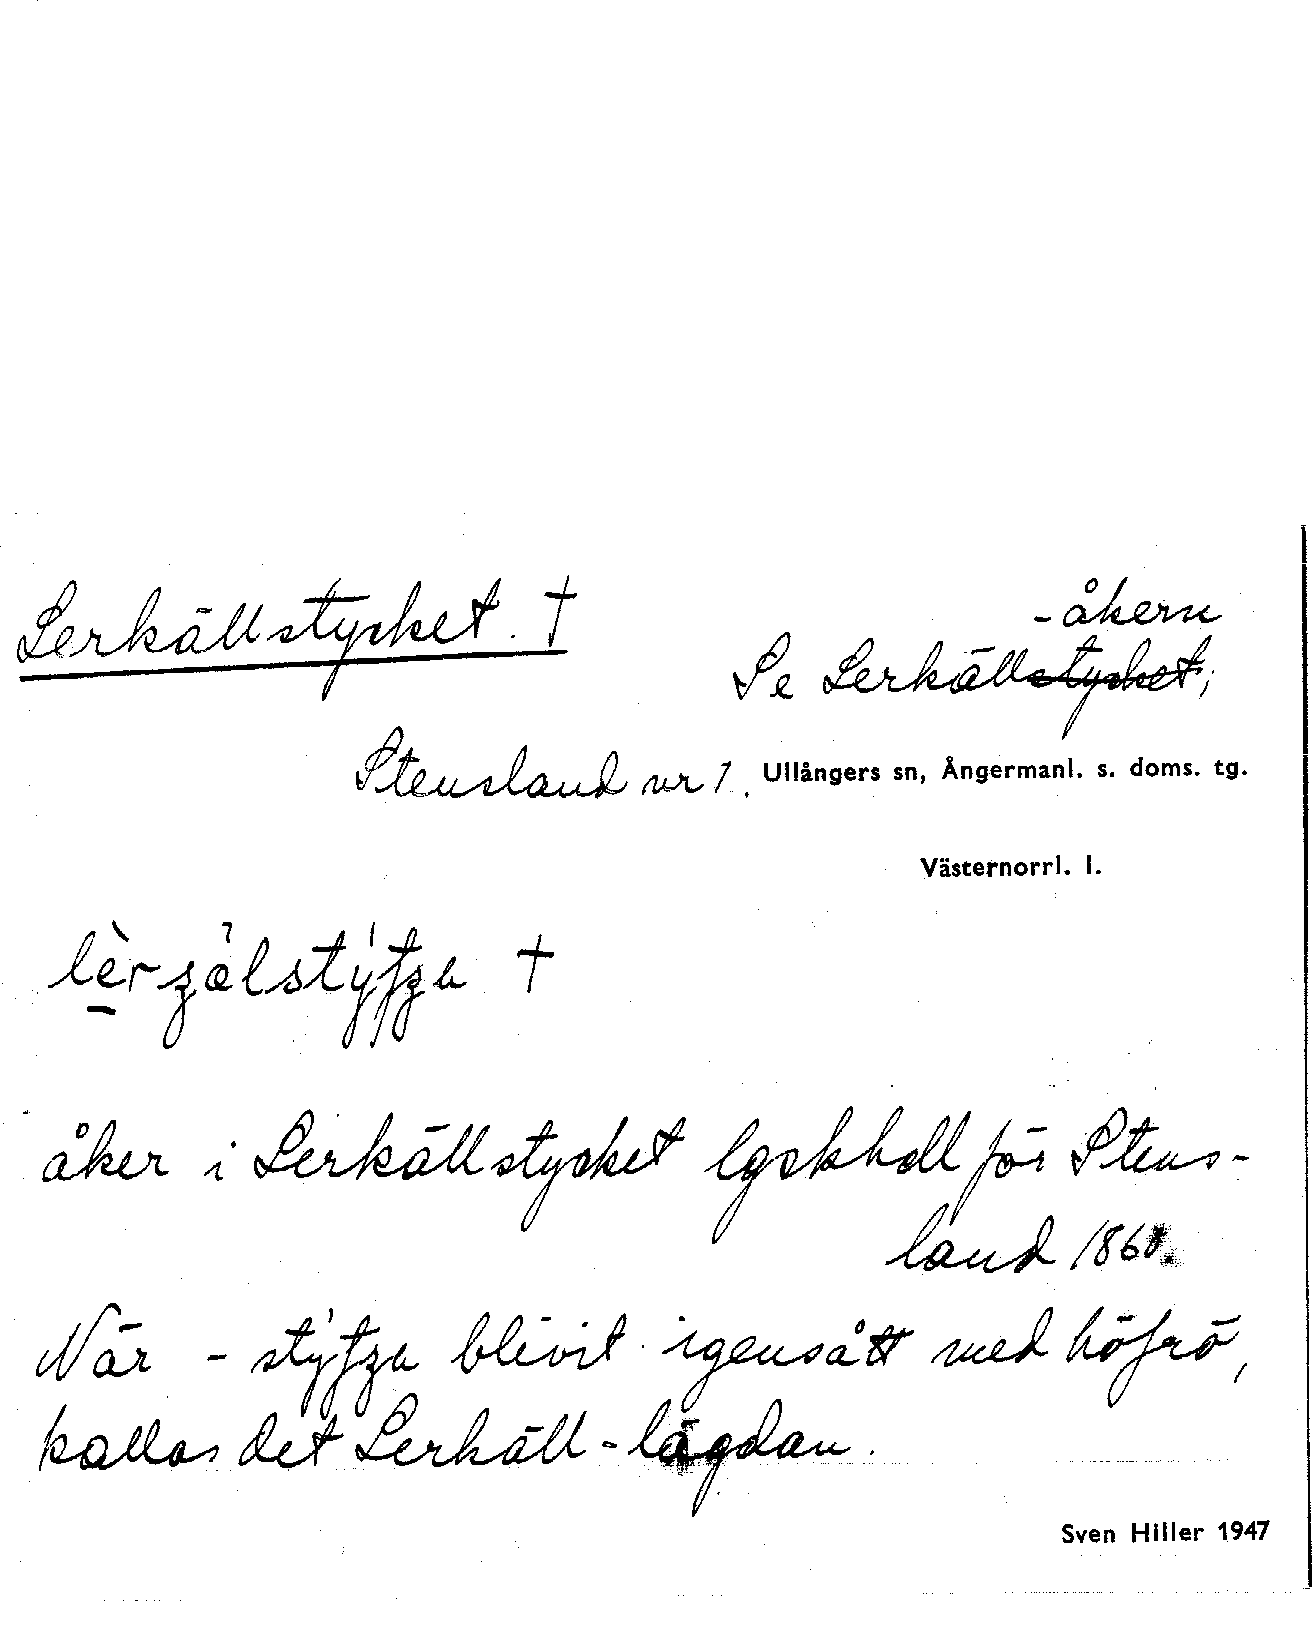 Lerkällstycket. †
-åkern
Se Lerkällstycket,
Stensland nr 1. Ullångers sn, Ångermanl. s. doms. tg.
Västernorrl. l.
†
åker i Lerkällstycket lgskholl för Stens-
land 186
När - blivit igensått med höfrö,
kallas det Lerkäll-lägdan.
Sven Hiller 1947